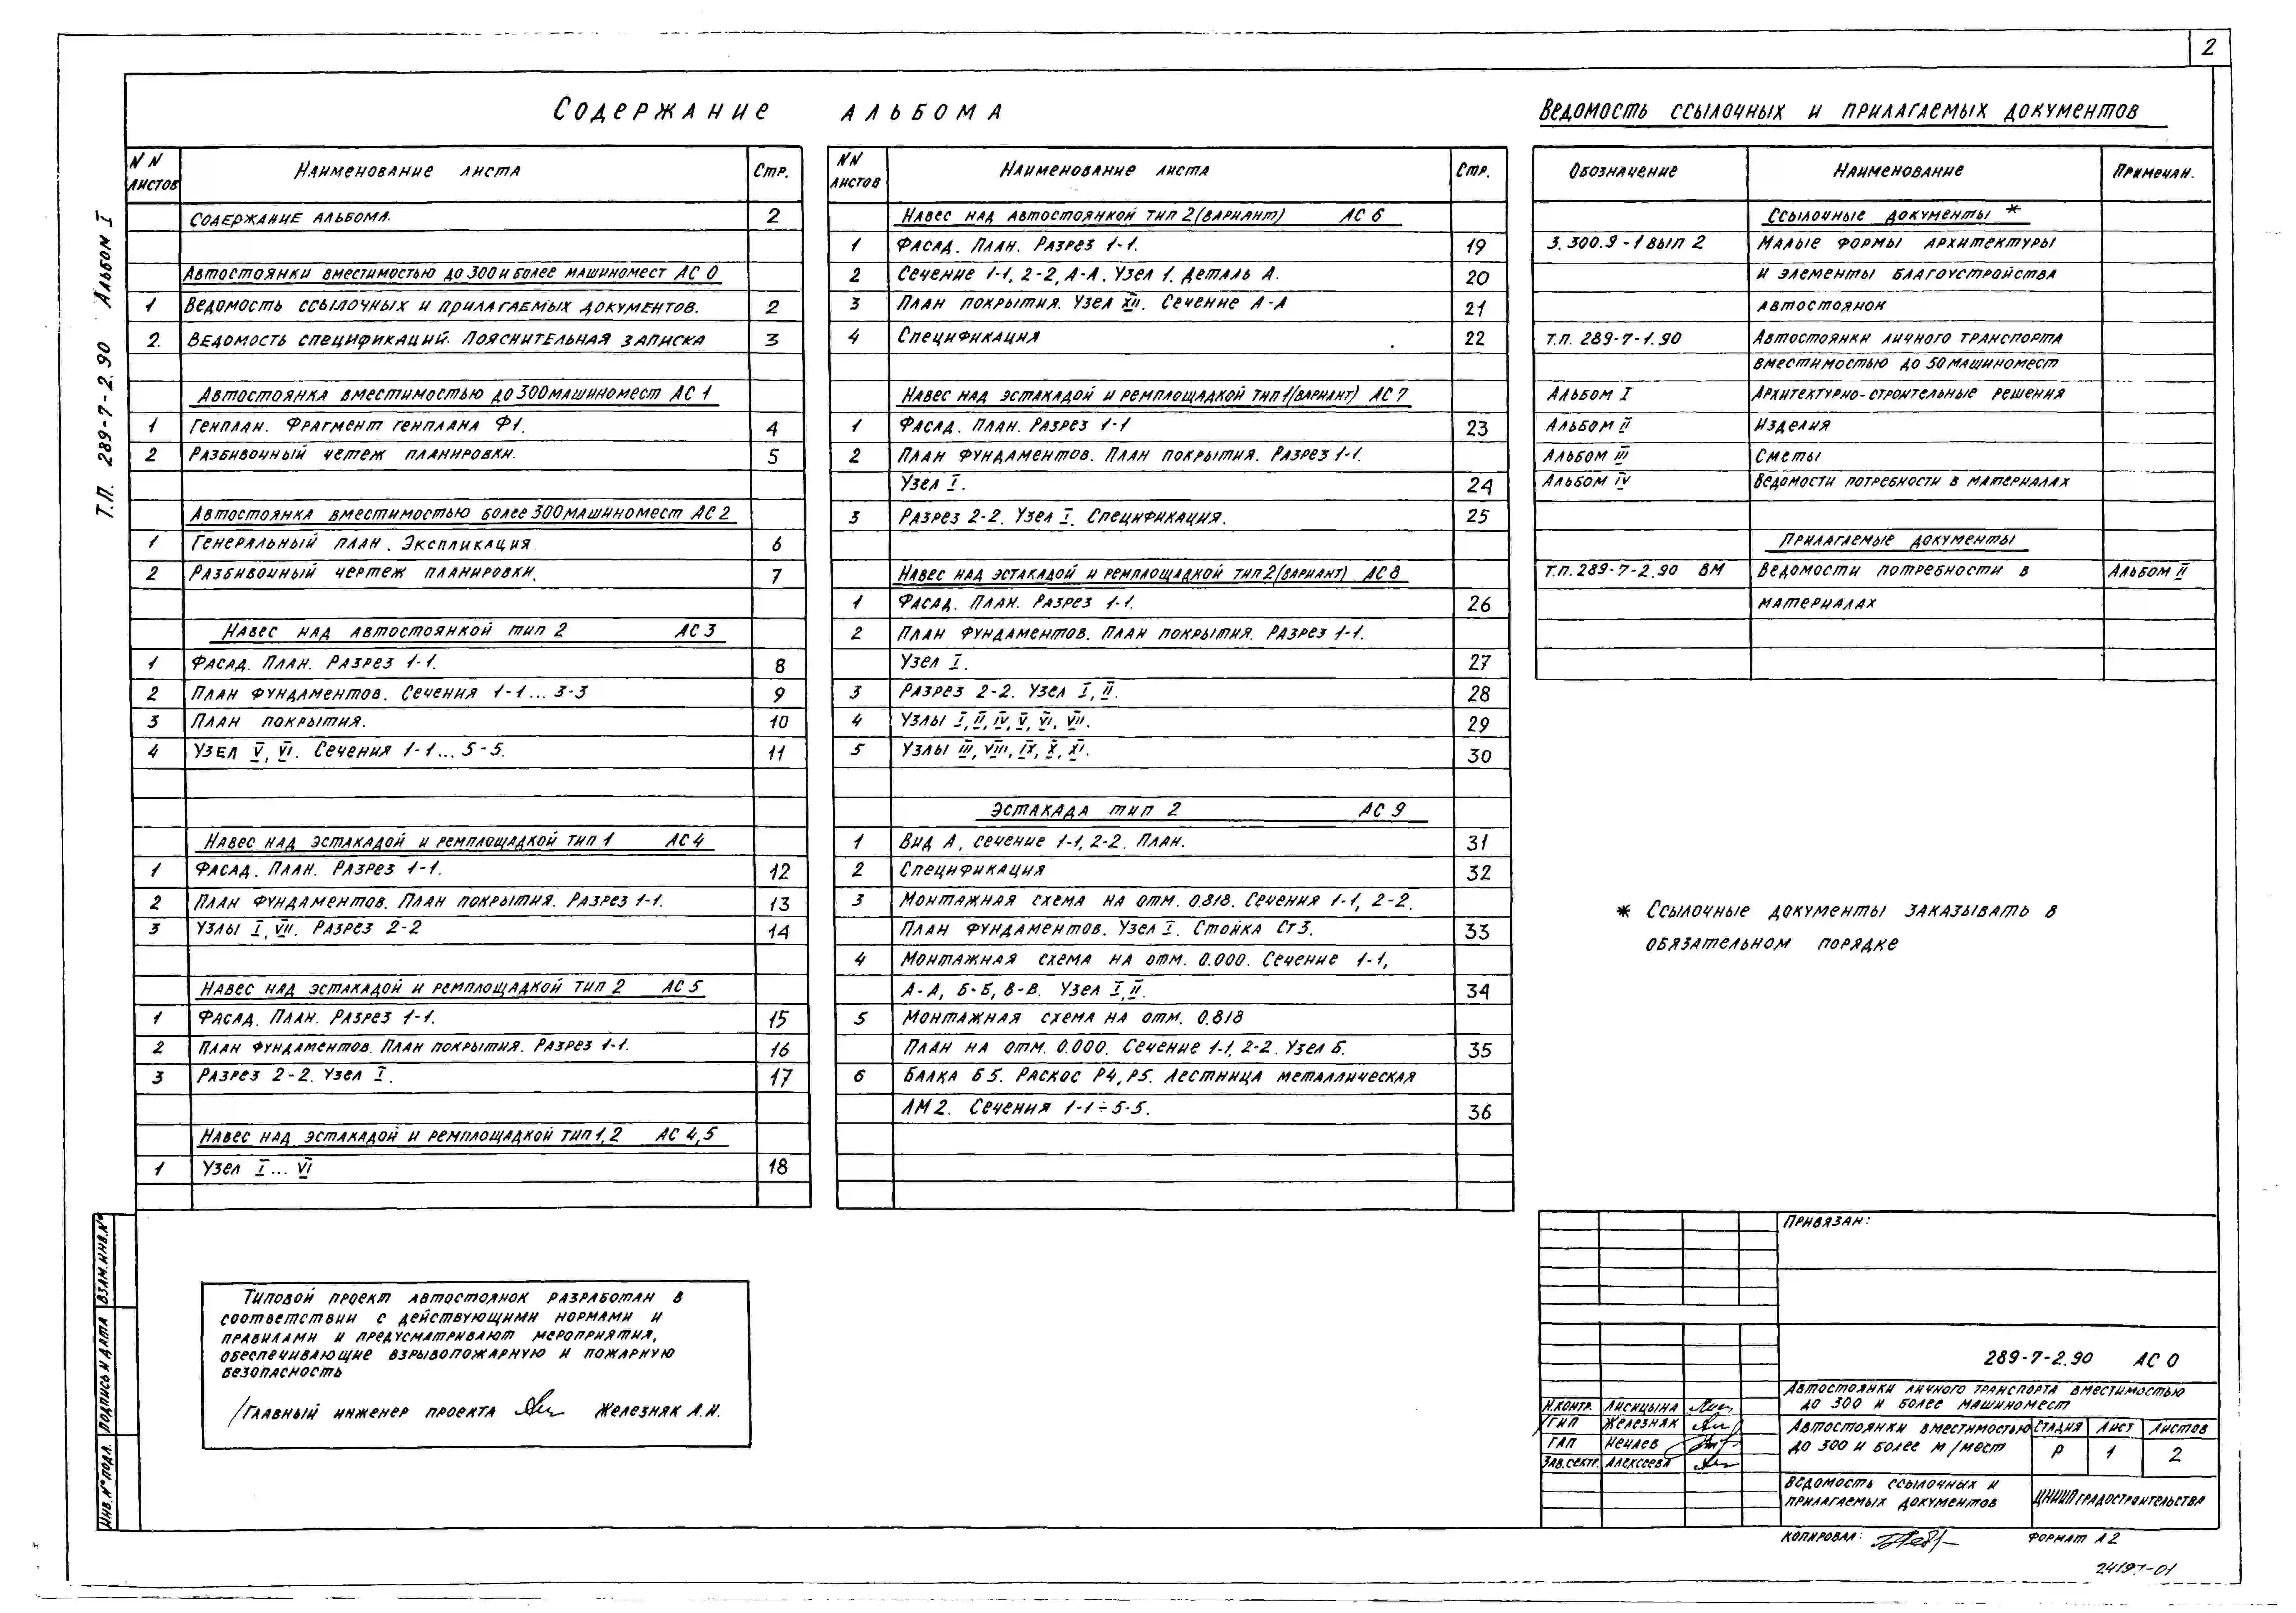 2
Т.П. 289-7-2.90 Альбом I
Содержание альбома
NN листов Наименование листа Стр.
Содержание альбома. 2
Автостоянки вместимостью до 300 и более машиномест АС 0
1 Ведомость ссылочных и прилагаемых документов. 2
2. Ведомость спецификаций. Пояснительная записка 3
Автостоянка вместимостью до 300 машиномест АС 1
1 Генплан. Фрагмент генплана Ф1. 4
2 Разбивочный четеж планировки. 5
Автостоянка вместимостью более 300 машиномест АС 2
1 Генеральный план. Экспликация 6
2 Разбивочный чертеж планировки. 7
Навес над автостоянкой тип 2 АС 3
1 Фасад. План. Разрез 1-1. 8
2 План фундаментов. Сечения 1-1... 3-3 9
3 План покрытия. 10
4 Узел V, VI. Сечения 1-1... 5-5. 11
Навес над эстакадой и ремплощадкой тип 1 АС 4
1 Фасад. План. Разрез 1-1. 12
2 План фундаментов. План покрытия. Разрез 1-1. 13
3 Узлы I, VII. Разрез 2-2 14
Навес над эстакадой и ремплощадкой тип 2 АС 5
1 Фасад. План. Разрез 1-1. 15
2 План фундаментов. План покрытия. Разрез 1-1. 16
3 Разрез 2-2. Узел I. 17
Навес над эстакадой и ремплощадкой тип 1,2 АС 4,5
1 Узел I... VI 18
NN листов Наименование листа Стр.
Навес над автостоянкой тип 2 (вариант) АС 6
1 Фасад. План. Разрез 1-1. 19
2 Сечение 1-1, 2-2, А-А. Узел 1. Деталь А. 20
3 План покрытия. Узел XII. Сечение А-А 21
4 Спецификация 22
Навес над эстакадой и ремплощадкой тип 1 (вариант) АС 7
1 Фасад. План. Разрез 1-1 23
2 План фундаментов. План покрытия. Разрез 1-1.
Узел I. 24
3 Разрез 2-2. Узел I. Спецификация. 25
Навес над эстакадой и ремплощадкой тип 2 (вариант) АС 8
1 Фасад. План. Разрез 1-1. 26
2 План фундаментов. План покрытия. Разрез 1-1.
Узел I. 27
3 Разрез 2-2. Узел I, II. 28
4 Узлы I, II, IV, V, VI, VII. 29
5 Узлы III, VIII, IX, X, XI. 30
Эстакада тип 2 АС 9
1 Вид А, сечение 1-1, 2-2. План. 31
2 Спецификация 32
3 Монтажная схема на отм. 0.818. Сечения 1-1, 2-2.
План фундаментов. Узел I. Стойка Ст3. 33
4 Монтажная схема на отм. 0.000. Сечение 1-1,
А-А, Б-Б, В-В. Узел I, II. 34
5 Монтажная схема на отм. 0.818
План на отм. 0.000. Сечение 1-1, 2-2. Узел Б. 35
6 Балка Б5. Раскос Р4, Р5. Лестница металлическая
ЛМ2. Сечения 1-1÷5-5. 36
Ведомость ссылочных и прилагаемых документов
Обозначение Наименование Примечан.
Ссылочные документы *
3.300.9-1 вып 2 Малые формы архитектуры
и элементы благоустройства
автостоянок
Т.П. 289-7-1.90 Автостоянки личного транспорта
вместимостью до 50 машиномест
Альбом I Архитектурно-строительные решения
Альбом II Изделия
Альбом III Сметы
Альбом IV Ведомости потребности в материалах
Прилагаемые документы
Т.П. 289-7-2.90 ВМ Ведомости потребности в Альбом II
материалах
* Ссылочные документы заказывать в
обязательном порядке
Типовой проект автостоянок разработан в
соответствии с действующими нормами и
правилами и предусматривают мероприятия,
обеспечивающие взрывопожарную и пожарную
безопасность
/Главный инженер проекта Железняк А.И.
Взам.инв.№
Подпись и дата
Инв.№ подл.
Привязан:
289-7-2.90 АС 0
Автостоянки личного транспорта вместимостью
до 300 и более машиномест
Н.контр. Лисицына
ГИП Железняк
ГАП Нечаев
Зав.сект. Алексеева
Автостоянки вместимостью
до 300 и более м/мест
Стадия Лист Листов
Р 1 2
Ведомость ссылочных и
прилагаемых документов
ЦНИИП градостроительства
Копировал: Формат А2
24197-01